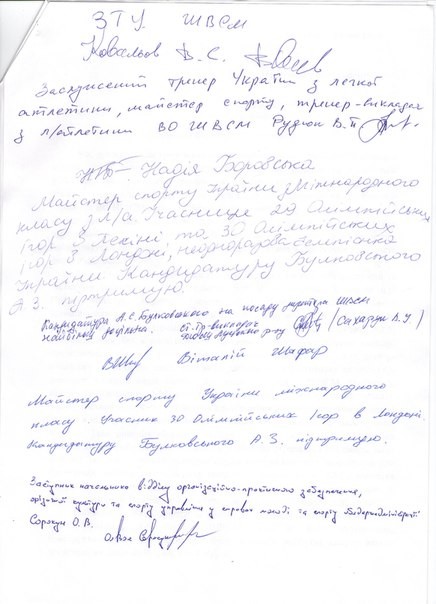 ЗТУ ШВСМ
Ковальов В. С.
Заслужений тренер України з легкої
атлетики, майстер спорту, тренер-викладач
з л/атлетики ВО ШВСМ Рудюк В.П.
Надія Боровська
Майстер спорту України міжнародного
класу з л/а Учасниця 29 Олимпійських
ігор в Пекіні та 30 Олимпійских
ігор в Лондоні, неодноразова чемпіонка
України. Кандидатуру Булковського
А.З. підтримую.
Кандидатура А.С. Булковського на посаду ШВСМ
найбільш ст. тр-викладач (Сахадзи В.У)
Віталій Шафар
Майстер спорту України міжнародного
класу. Учасник 30 Олімпійських Ігор в Лондоні.
Кандидатуру Булковського А.З. підтримую.
Заступник начальника відділу організаційно-правового забезпечення,
фізичної культури та спорту управління у справах молоді та спорту облдержадміністрації
Сорокун О.В.